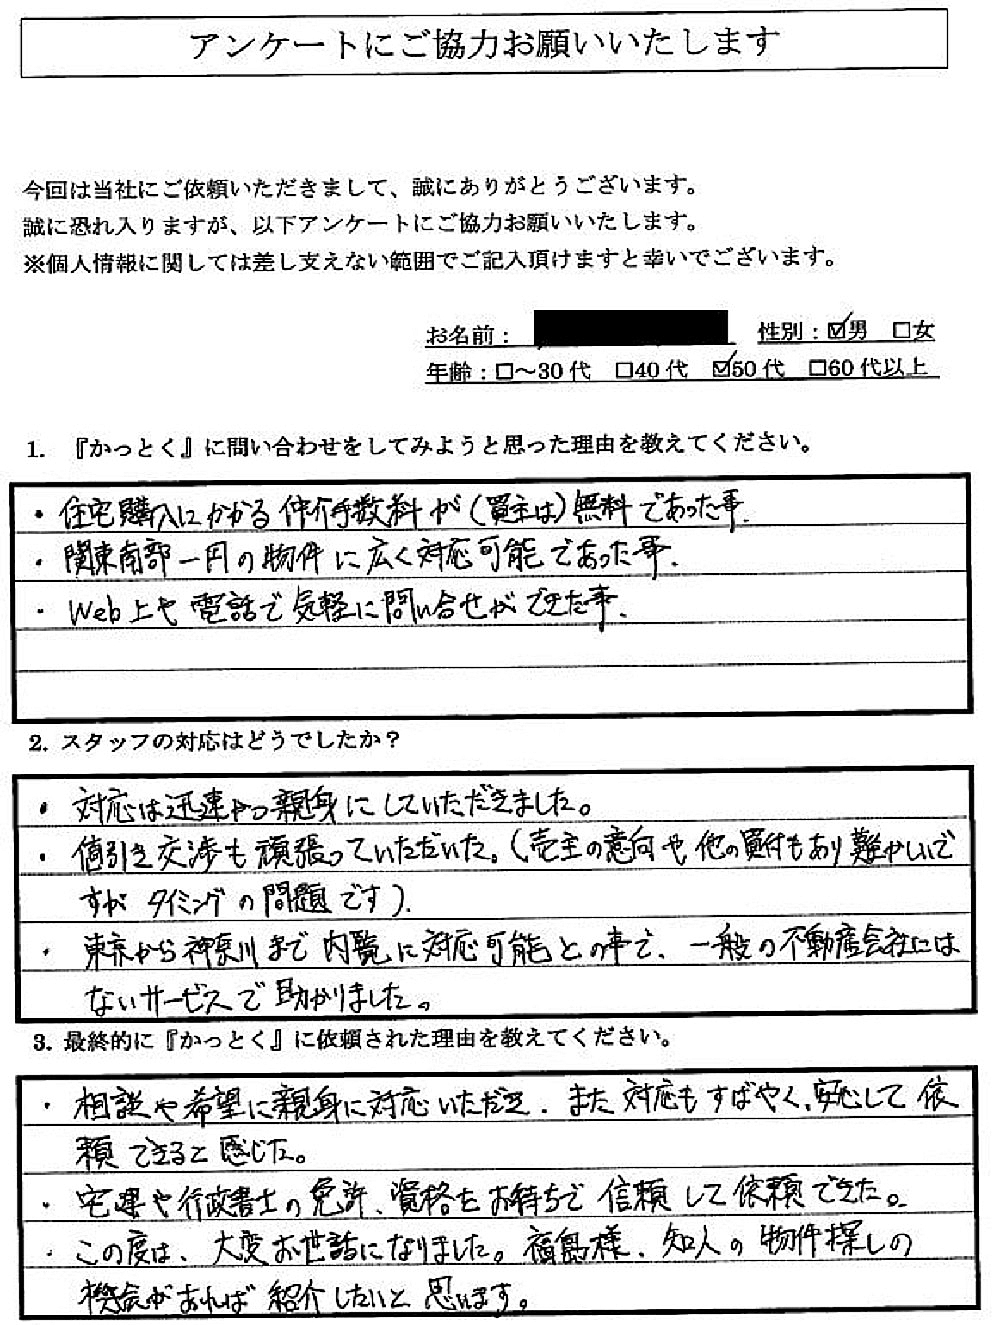 アンケートにご協力お願いいたします
今回は当社にご依頼いただきまして、誠にありがとうございます。
誠に恐れ入りますが、以下アンケートにご協力お願いいたします。
※個人情報に関しては差し支えない範囲でご記入頂けますと幸いでございます。
お名前： 性別：☑男 □女
年齢：□～30代 □40代 ☑50代 □60代以上
1. 『かっとく』に問い合わせをしてみようと思った理由を教えてください。
・住宅購入にかかる仲介手数料が(買主は)無料であった事.
・関東南部一円の物件に広く対応可能であった事.
・Web上や電話で気軽に問い合せができた事.
2. スタッフの対応はどうでしたか？
・対応は迅速かつ親身にしていただきました。
・値引き交渉も頑張っていただいた。(売主の意向や他の買付もあり難かしいで
すがタイミングの問題です).
・東京から神奈川まで内覧に対応可能との事で、一般の不動産会社には
ないサービスで助かりました。
3. 最終的に『かっとく』に依頼された理由を教えてください。
・相談や希望に親身に対応いただき、また対応もすばやく、安心して依
頼できると感じた。
・宅建や行政書士の免許、資格をお持ちで信頼して依頼できた。
・この度は、大変お世話になりました。福島様、知人の物件探しの
機会があれば紹介したいと思います。